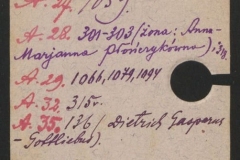 A. 27. 
A. 28. 301-303 /żona: Anna-
Marjanna Płończykówna/,
A. 29. 1066, 1079, 1094
A. 32. 315v.
A. 35. 136 / Dietrich Gasparus
- Gottlieb